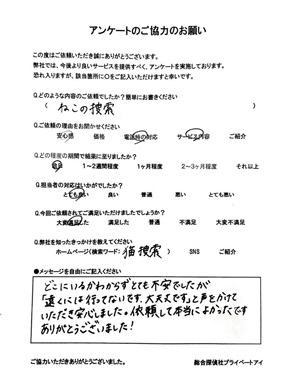 アンケートのご協力のお願い
この度はご依頼いただき誠にありがとうございます。
弊社では、今後より良いサービスを提供すべく、アンケートを実施しております。
恐れ入りますが、該当箇所に〇をご記入いただけますと幸いです。
Q.どのような内容のご依頼でしたか?簡単にお書きください
( ねこの捜索 )
Q.ご依頼の理由をお聞かせください
安心感 価格 電話時の対応 サービス内容 ご紹介
Q.どの程度の期間で結果に至りましたか?
1~2週間程度 1ヶ月程度 2~3ヶ月程度 それ以上
Q.担当者の対応はいかがでしたか?
とても良い 良い 普通 悪い とても悪い
Q.今回ご依頼されてご満足いただけましたでしょうか?
大変満足した 満足した 普通 不満足 大変不満足
Q.弊社を知ったきっかけを教えてください
ホームページ(検索ワード: 猫捜索 ) SNS ご紹介
●メッセージを自由にご記入ください
どこにいるかわからずとても不安でしたが
「遠くには行ってないです、大丈夫です」と声をかけて
いただき安心しました。依頼して本当によかったです
ありがとうございました!
ご協力いただきありがとうございました。
総合探偵社プライベートアイ